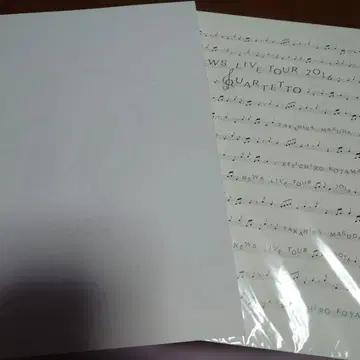 WS LIVE TOUR 2016
QUARTETTO
TAKAHISA MASUDA
KEIICHIRO KOYAMA
NEWS LIVE TOUR 2016
TAKAHISA MASUDA
NEWS LIVE TOUR 2016
KEIICHIRO KOYAMA